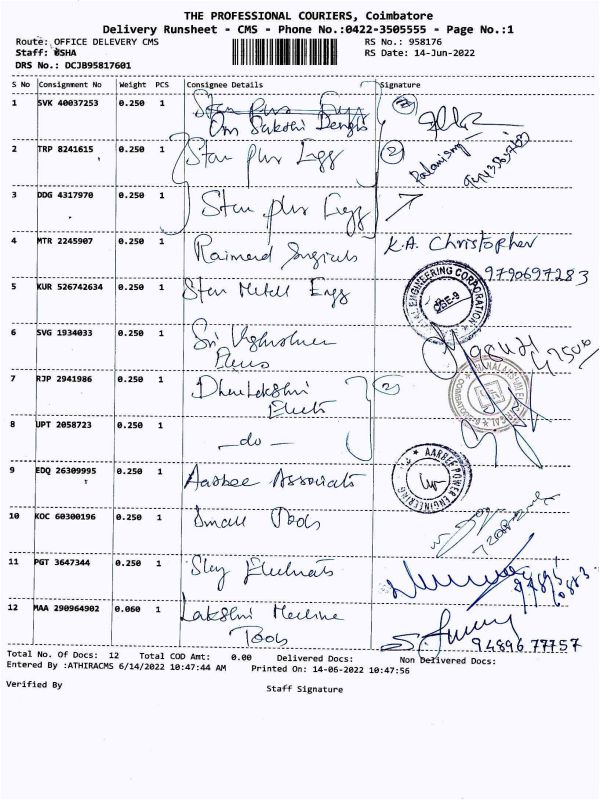 THE PROFESSIONAL COURIERS, Coimbatore
Delivery Runsheet - CMS - Phone No.:0422-3505555 - Page No.:1
Route: OFFICE DELEVERY CMS RS No.: 958176
Staff: USHA RS Date: 14-Jun-2022
DRS No.: DCJB95817601
S No Consignment No Weight PCS Consignee Details Signature
1 SVK 40037253 0.250 1 Star plus Engg
Om Sakthi Dengs
2 TRP 8241615 0.250 1 Star plus Engg (2)
3 DDG 4317970 0.250 1 Star plus Engg
4 MTR 2245907 0.250 1 Raimend Surgicals K.A. Christopher
9790697283
5 KUR 526742634 0.250 1 Star Metell Engg ENGINEERING CORPORATION
CBE-9
6 SVG 1934033 0.250 1 Sri
7 RJP 2941986 0.250 1 DhanaLakshmi (2)
Elects
8 UPT 2058723 0.250 1 - do -
9 EDQ 26309995 0.250 1 Aarbee Associats AARBEE POWER ENGINEERING
10 KOC 60300196 0.250 1 Small Tools
11 PGT 3647344 0.250 1
12 MAA 290964902 0.060 1 Lakshmi Machine
Tools
94896 77757
Total No. Of Docs: 12 Total COD Amt: 0.00 Delivered Docs: Non Delivered Docs:
Entered By :ATHIRACMS 6/14/2022 10:47:44 AM Printed On: 14-06-2022 10:47:56
Verified By Staff Signature